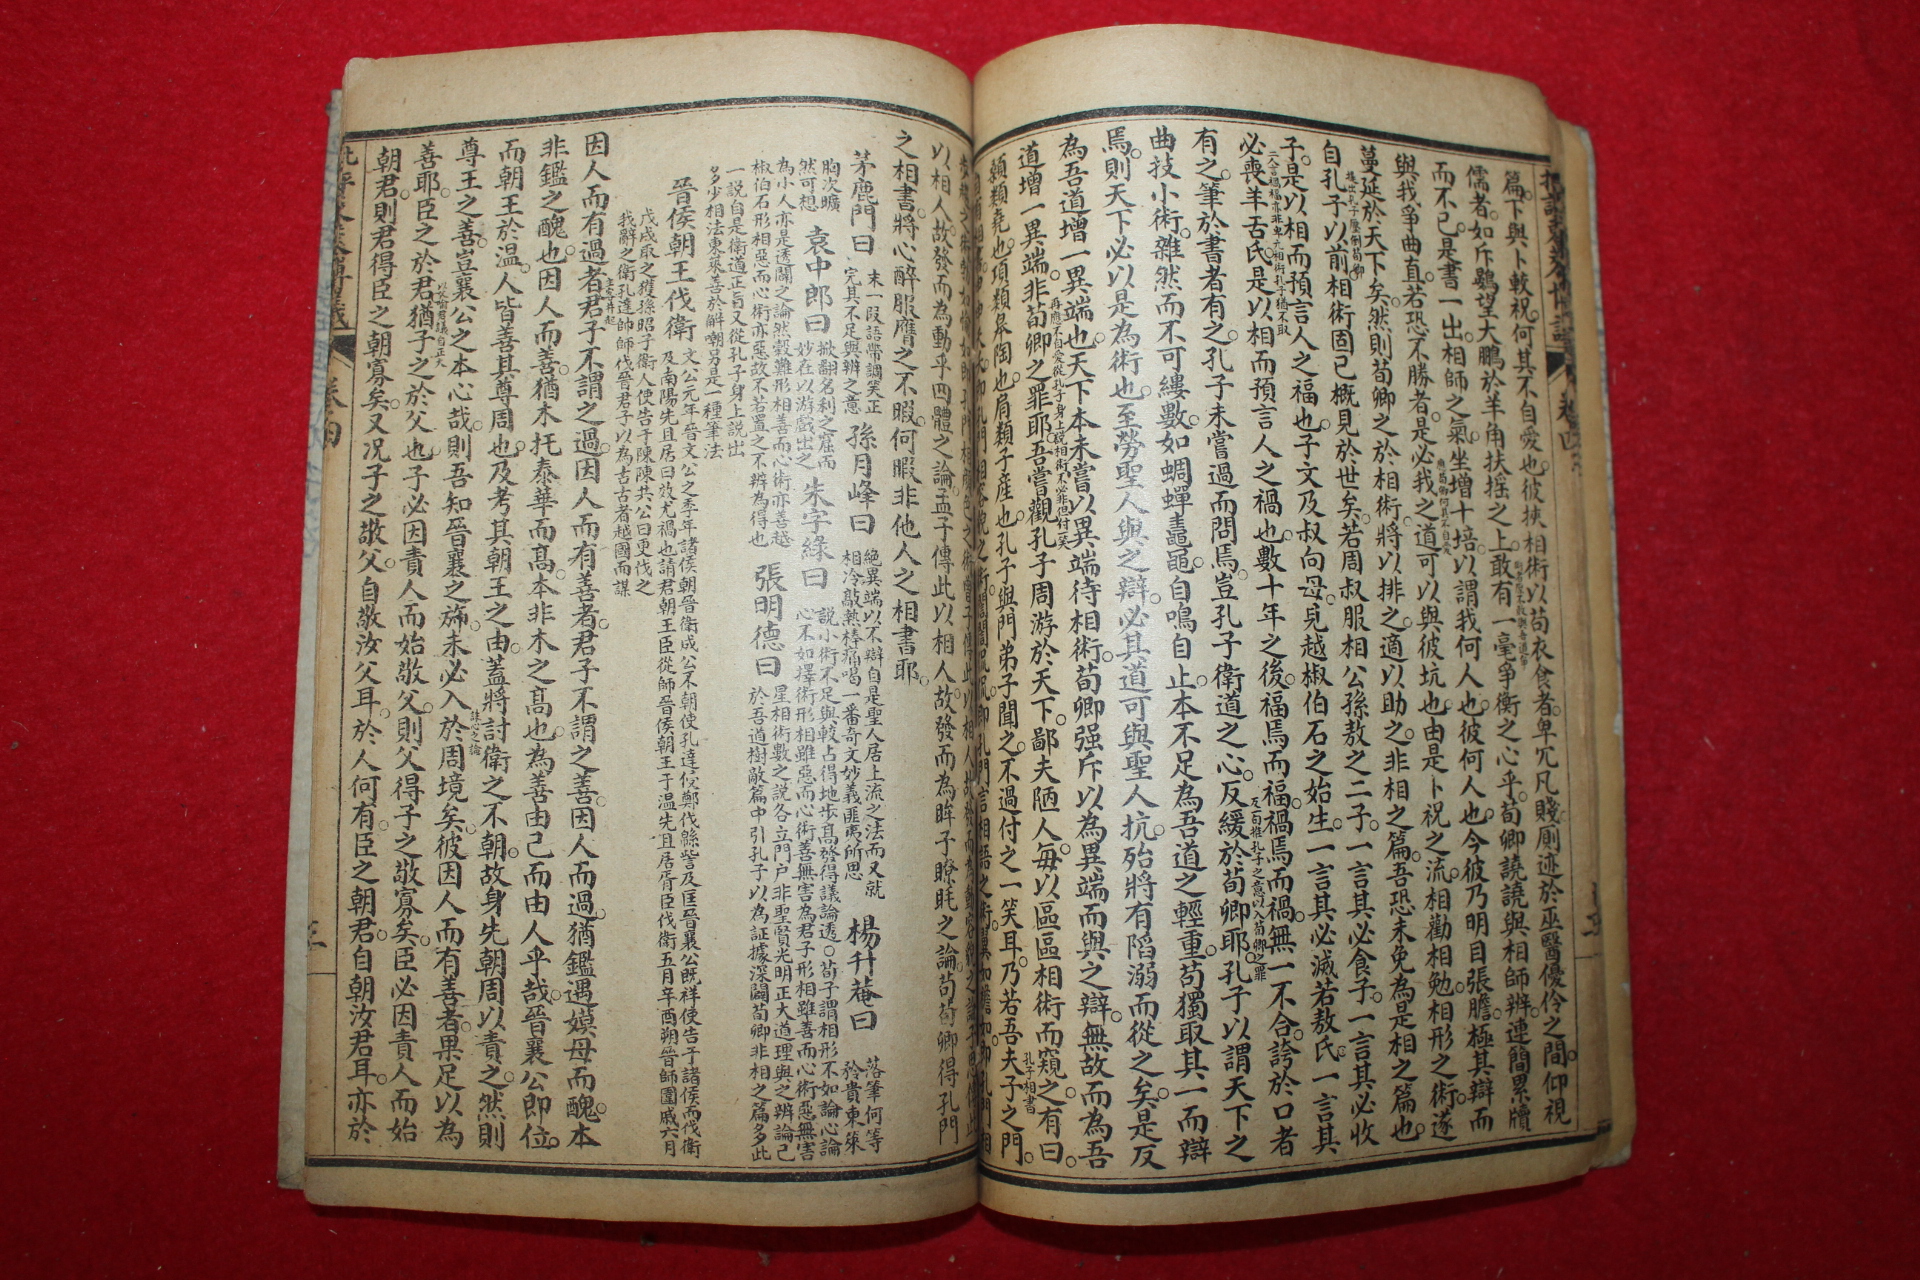 篇下與卜較祝何其不自愛也彼挾相術以苟衣食者卑冗凡賤厠迹於巫醫優伶之間仰視
儒者如斥鷃望大鵬於羊角扶搖之上敢有一毫爭衡之心乎荀卿譊譊與相師辨連簡累牘
而不已是書一出相師之氣坐增十培以謂我何人也彼何人也今彼乃明目張膽極其辯而
與我爭曲直若恐不勝者是必我之道可以與彼坑也由是卜祝之流相勸相勉相形之術遂
蔓延於天下矣然則荀卿之於相術將以排之適以助之非相之篇吾恐未免為是相之篇也
自孔子以前相術固已概見於世矣若周叔服相公孫敖之二子一言其必食子一言其必收
子是以相而預言人之福也子文及叔向母見越椒伯石之始生一言其必滅若敖氏一言其
必喪羊舌氏是以相而預言人之禍也數十年之後福焉而福禍焉而禍無一不合誇於口者
有之筆於書者有之孔子未嘗過而問焉豈孔子衛道之心反緩於荀卿耶孔子以謂天下之
曲技小術雜然而不可縷數如蜩蟬鼃黽自鳴自止本不足為吾道之輕重荀獨取其一而辯
焉則天下必以是為術也至勞聖人與之辯必其道可與聖人抗殆將有陷溺而從之矣是反
為吾道增一異端也天下本未嘗以異端待相術荀卿强斥以為異端而與之辯無故而為吾
道增一異端非荀卿之罪耶吾嘗觀孔子周游於天下鄙夫陋人每以區區相術而窺之有曰
顙類堯也項類皋陶也肩類子產也孔子與門弟子聞之不過付之一笑耳乃若吾夫子之門
以相人故發而為動乎四體之論孟子傳此以相人故發而為眸子瞭眊之論荀卿得孔門
之相書將心醉服膺之不暇何暇非他人之相書耶
茅鹿門曰 末一段語帶調笑正完其不足與辨之意 孫月峰曰 絶異端以不辯自是聖人居上流之法而又就相冷敲熱棒痛喝一番奇文妙義匪夷所思 楊升菴曰 落筆何等矜貴東萊
胸次曠然可想 袁中郎曰 掀翻名利之窟而妙在以游戲出之 朱字綠曰 説小術不足與較占得地步高發得議論透○荀子謂相形不如論心論心不如擇術形相雖惡而心術善無害為君子形相雖善而心術惡無害
為小人亦是透闢之論然穀難形相善而心術亦善越椒伯石形相惡而心術亦惡故不若置之不辨為得也 張明德曰 星相術數之説各立門户非聖賢光明正大道理與之辨論己於吾道樹敵篇中引孔子以為証據深闢荀卿非相之篇多此
一説自是衛道正旨又從孔子身上説出多少相法東萊善於解嘲另是一種筆法
晉侯朝王伐衛 文公元年晉文公之季年諸侯朝晉衛成公不朝使孔達侵鄭伐緜訾及匡晉襄公既祥使告于諸侯而伐衛
及南陽先且居曰效尤禍也請君朝王臣從師晉侯朝王于温先且居胥臣伐衛五月辛酉朔晉師圍戚六月
戊戌取之獲孫昭子衛人使告于陳陳共公曰更伐之
我辭之衛孔達帥師伐晉君子以為古古者越國而謀
因人而有過者君子不謂之過因人而有善者君子不謂之善因人而過猶鑑遇嫫母而醜本
非鑑之醜也因人而善猶木托泰華而高本非木之高也為善由己而由人乎哉晉襄公即位
而朝王於温人皆善其尊周也及考其朝王之由蓋將討衛之不朝故身先朝周以責之然則
尊王之善豈襄公之本心哉則吾知晉襄之斾未必入於周境矣彼因人而有善者果足以為
善耶臣之於君猶子之於父也子必因責人而始敬父則父得子之敬寡矣臣必因責人而始
朝君則君得臣之朝寡矣又况子之敬父自敬汝父耳於人何有臣之朝君自朝汝君耳亦於
卷四